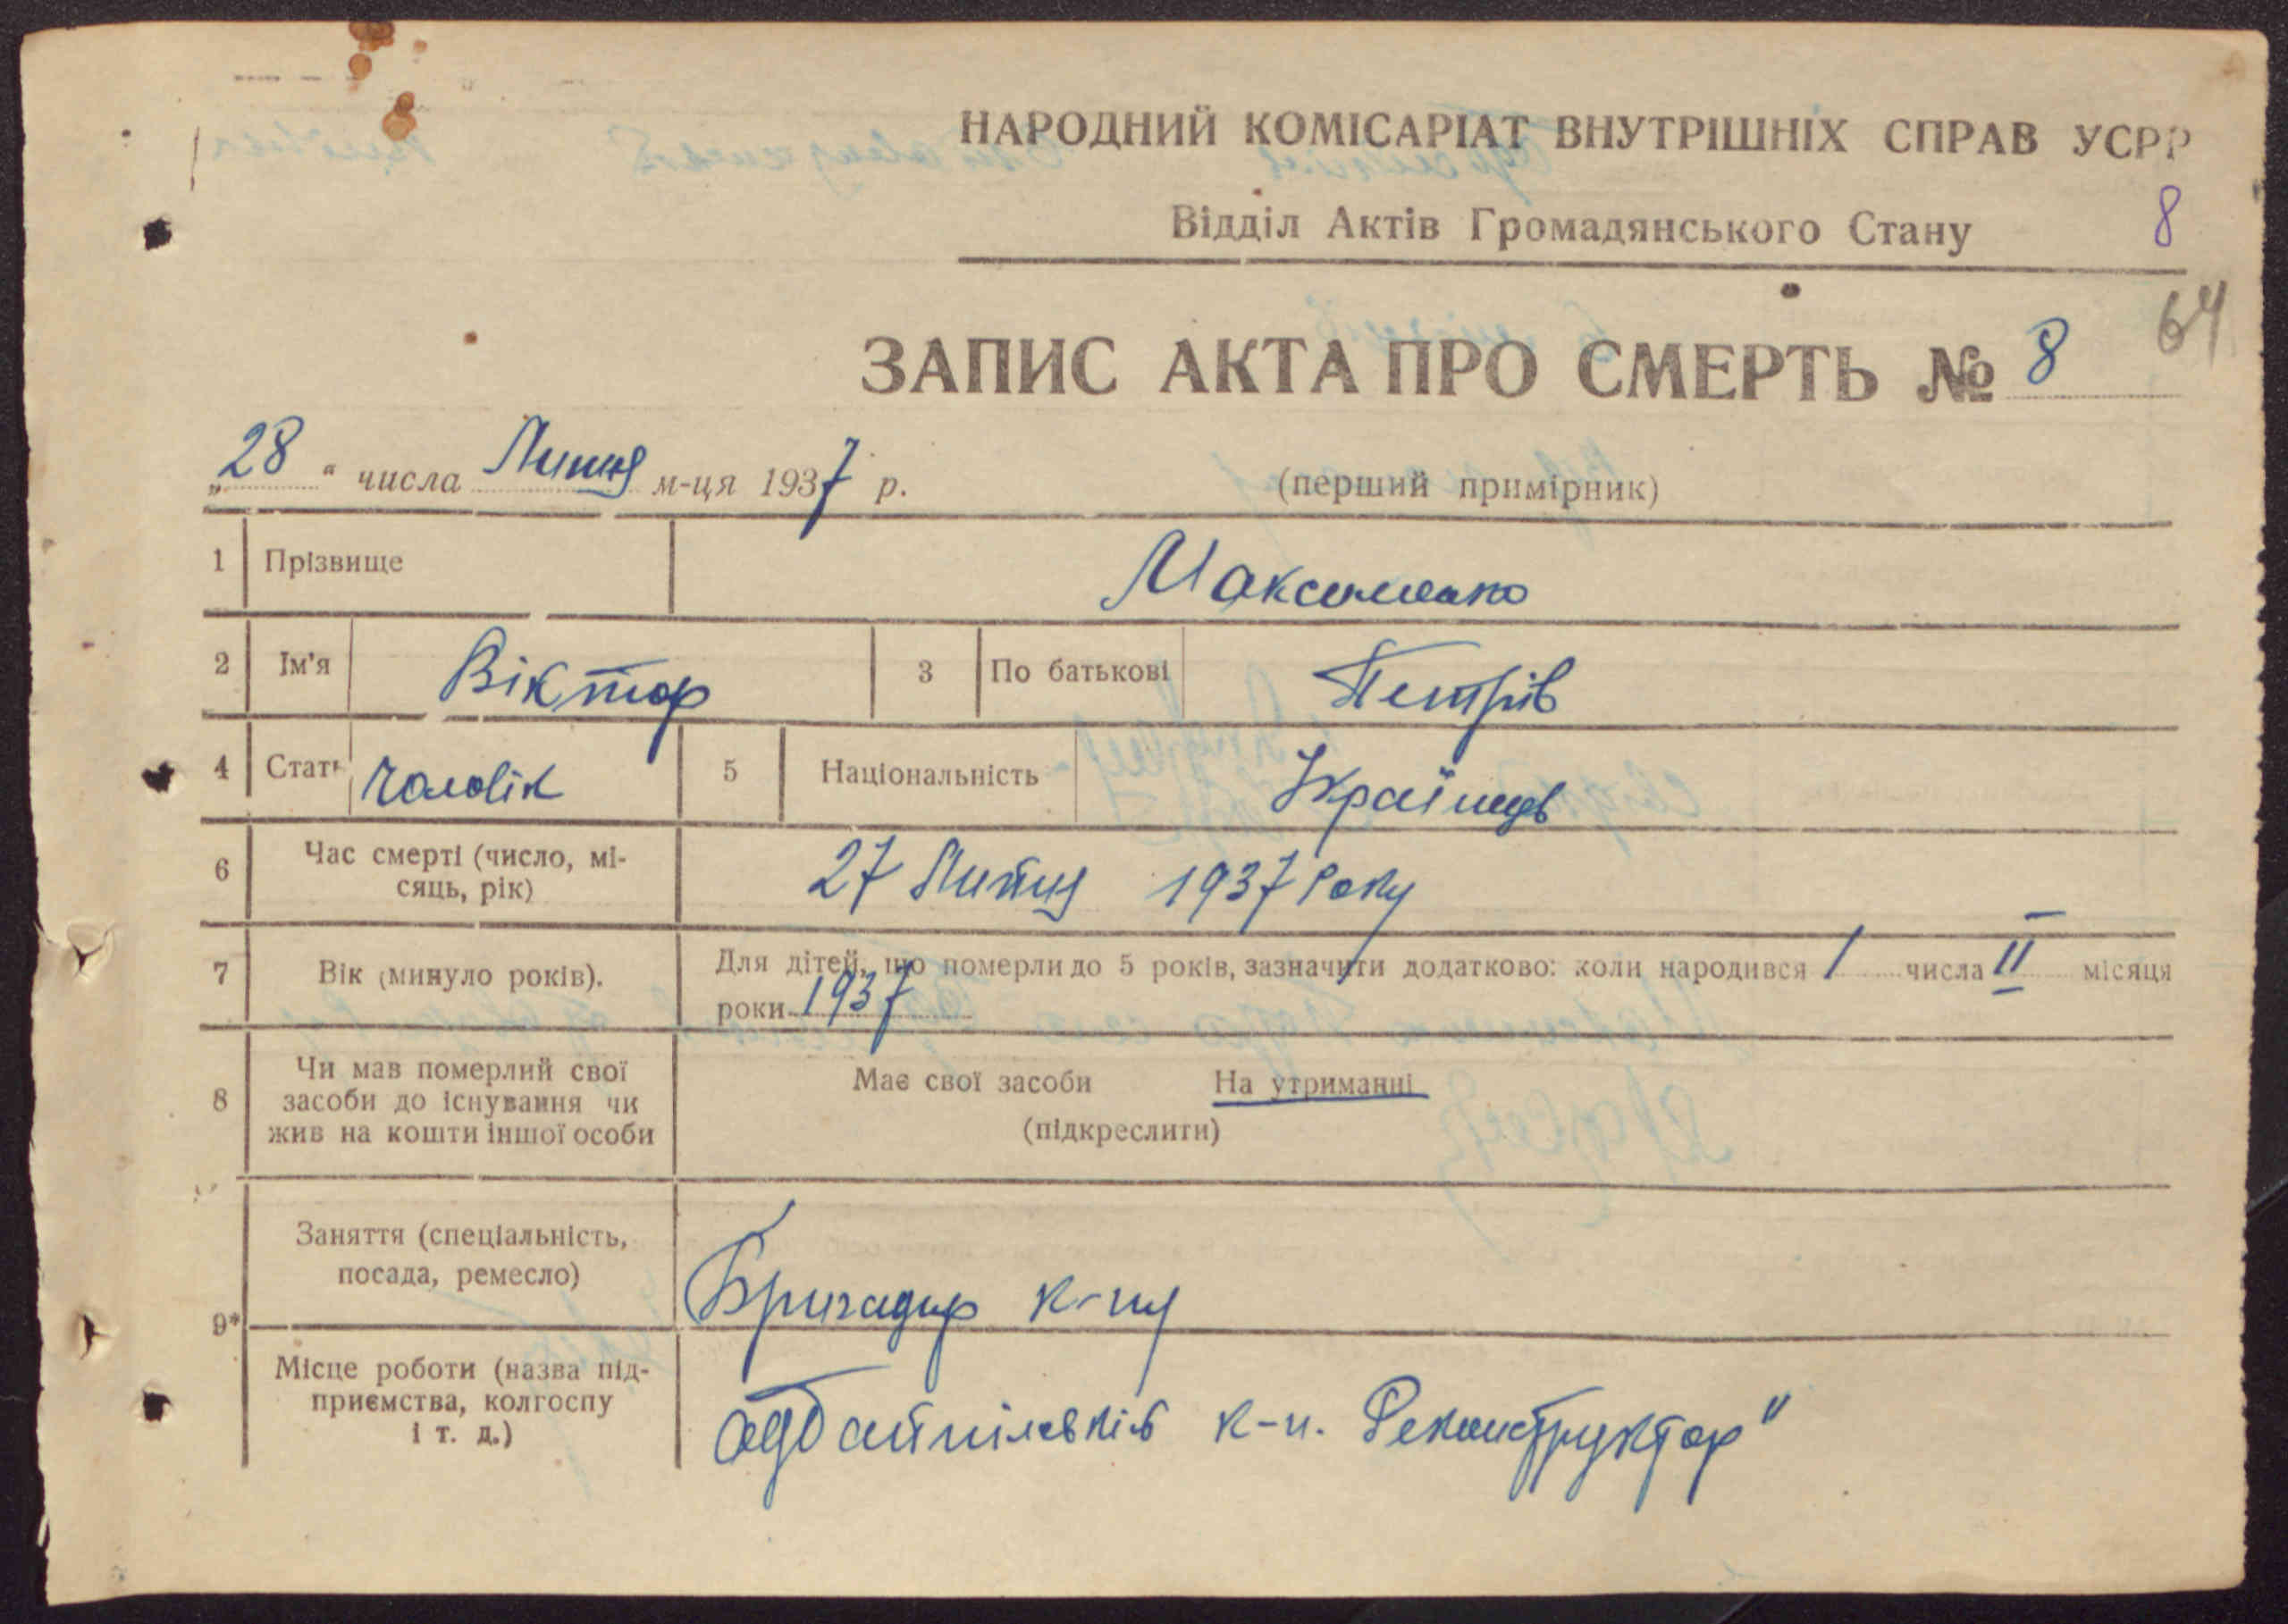 НАРОДНИЙ КОМІСАРІАТ ВНУТРІШНІХ СПРАВ УСРР
Відділ Актів Громадянського Стану
8
64
ЗАПИС АКТА ПРО СМЕРТЬ № 8
„28“ числа Липня м-ця 1937 р.
(перший примірник)
1 Прізвище Максименко
2 Ім'я Віктор 3 По батькові Петрів
4 Стать чоловік 5 Національність Українць
6 Час смерті (число, мі-
сяць, рік) 27 Липня 1937 Року
7 Вік (минуло років). Для дітей, що померли до 5 років, зазначити додатково: коли народився 1 числа II місяця
роки 1937
8 Чи мав померлий свої
засоби до існування чи
жив на кошти іншої особи
Має свої засоби На утриманні
(підкреслити)
9* Заняття (спеціальність,
посада, ремесло)
Бригадир к-пу
Місце роботи (назва під-
приємства, колгоспу
і т. д.)
к-п. Реконструктор"